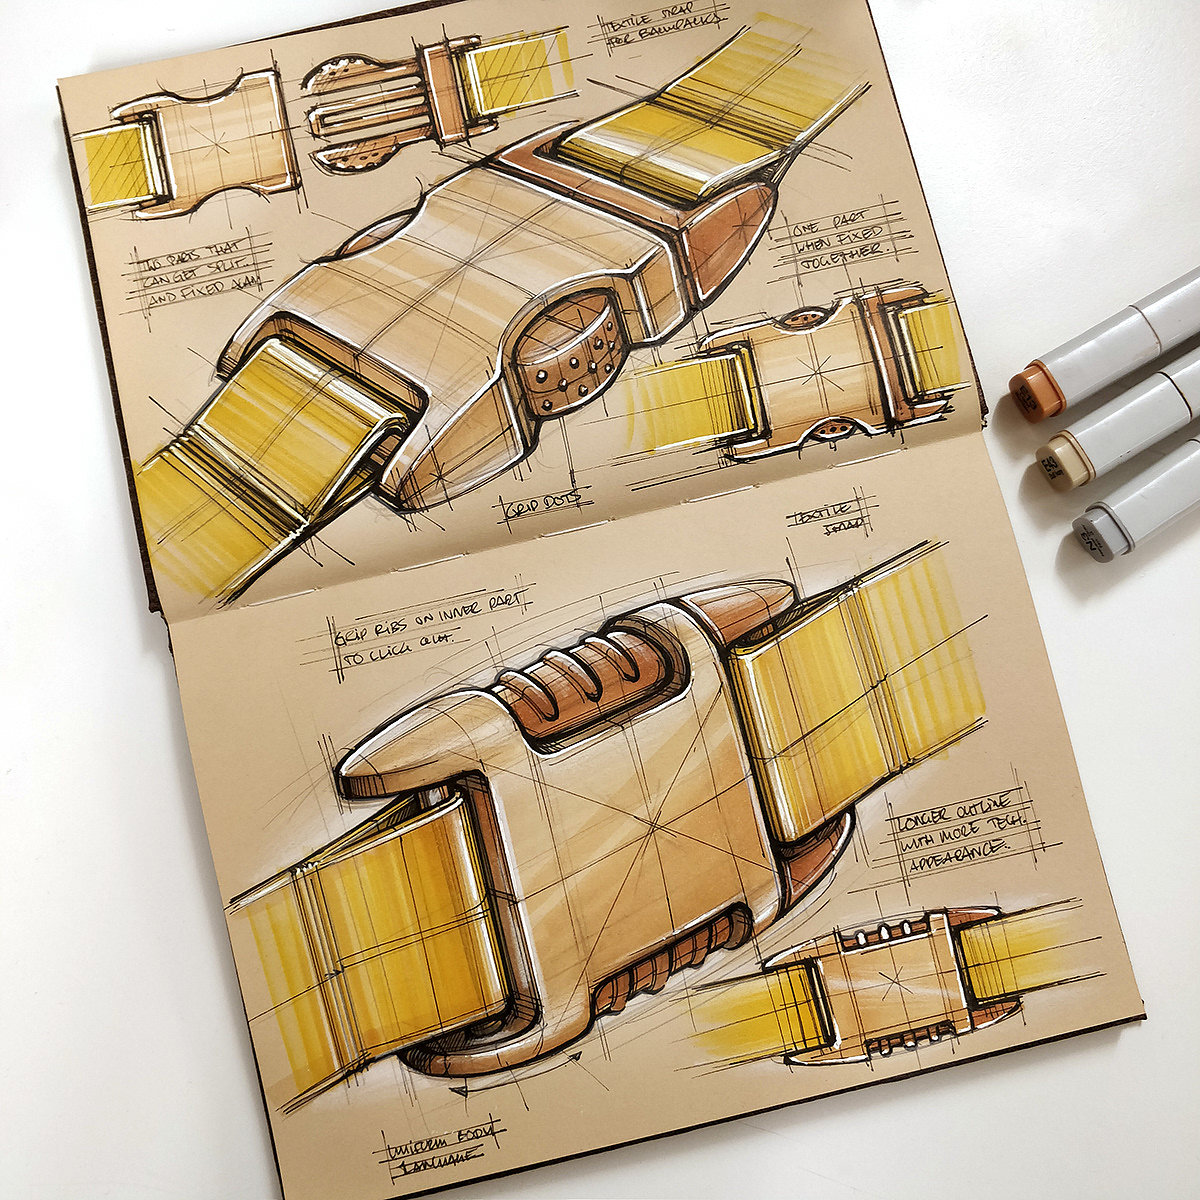 TEXTILE STRAP
FOR BACKPACKS
TWO PARTS THAT
CAN GET SPLIT
AND FIXED AGAIN
ONE PART
WHEN FIXED
TOGETHER
GRIP DOTS
TEXTILE
STRAP
GRIP RIBS ON INNER PART
TO CLICK OUT.
LONGER OUTLINE
WITH MORE TECH.
APPEARANCE.
UNIFORM BODY
LANGUAGE